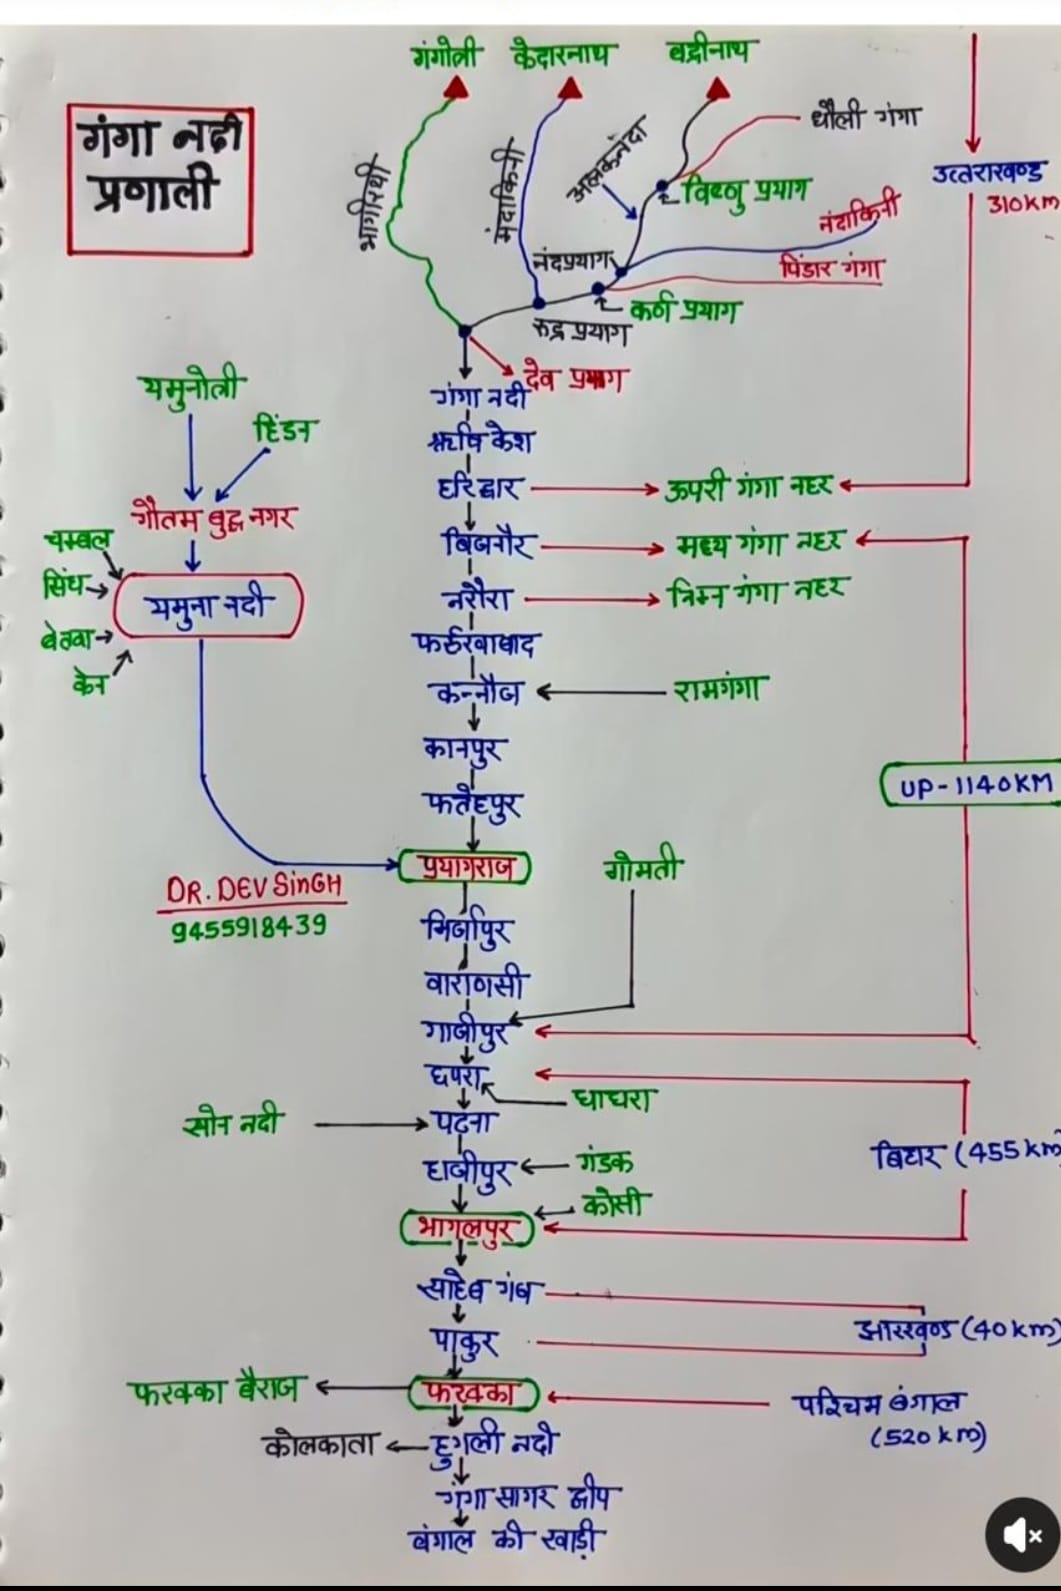 गंगोत्री केदारनाथ बद्रीनाथ
गंगा नदी
प्रणाली
भागीरथी
मंदाकिनी
अलकनंदा
धौली गंगा
विष्णु प्रयाग
उत्तराखण्ड
310km
नंदाकिनी
नंदप्रयाग
पिंडार गंगा
कर्ण प्रयाग
रुद्र प्रयाग
देव प्रयाग
यमुनोत्री
हिंडन
गंगा नदी
ऋषि केश
हरिद्वार
ऊपरी गंगा नहर
गौतम बुद्ध नगर
चम्बल
बिजनौर
मध्य गंगा नहर
सिंध
यमुना नदी
नरौरा
निम्न गंगा नहर
बेतवा
केन
फर्रुखाबाद
कन्नौज
रामगंगा
कानपुर
UP-1140KM
फतेहपुर
प्रयागराज
गोमती
DR. DEV SinGH
9455918439
मिर्जापुर
वाराणसी
गाजीपुर
छपरा
घाघरा
सोन नदी
पटना
बिहार (455 km)
हाजीपुर
गंडक
कोसी
भागलपुर
साहेब गंज
झारखण्ड (40 km)
पाकुर
फरक्का बैराज
फरक्का
पश्चिम बंगाल
(520 km)
कोलकाता
हुगली नदी
गंगा सागर द्वीप
बंगाल की खाड़ी